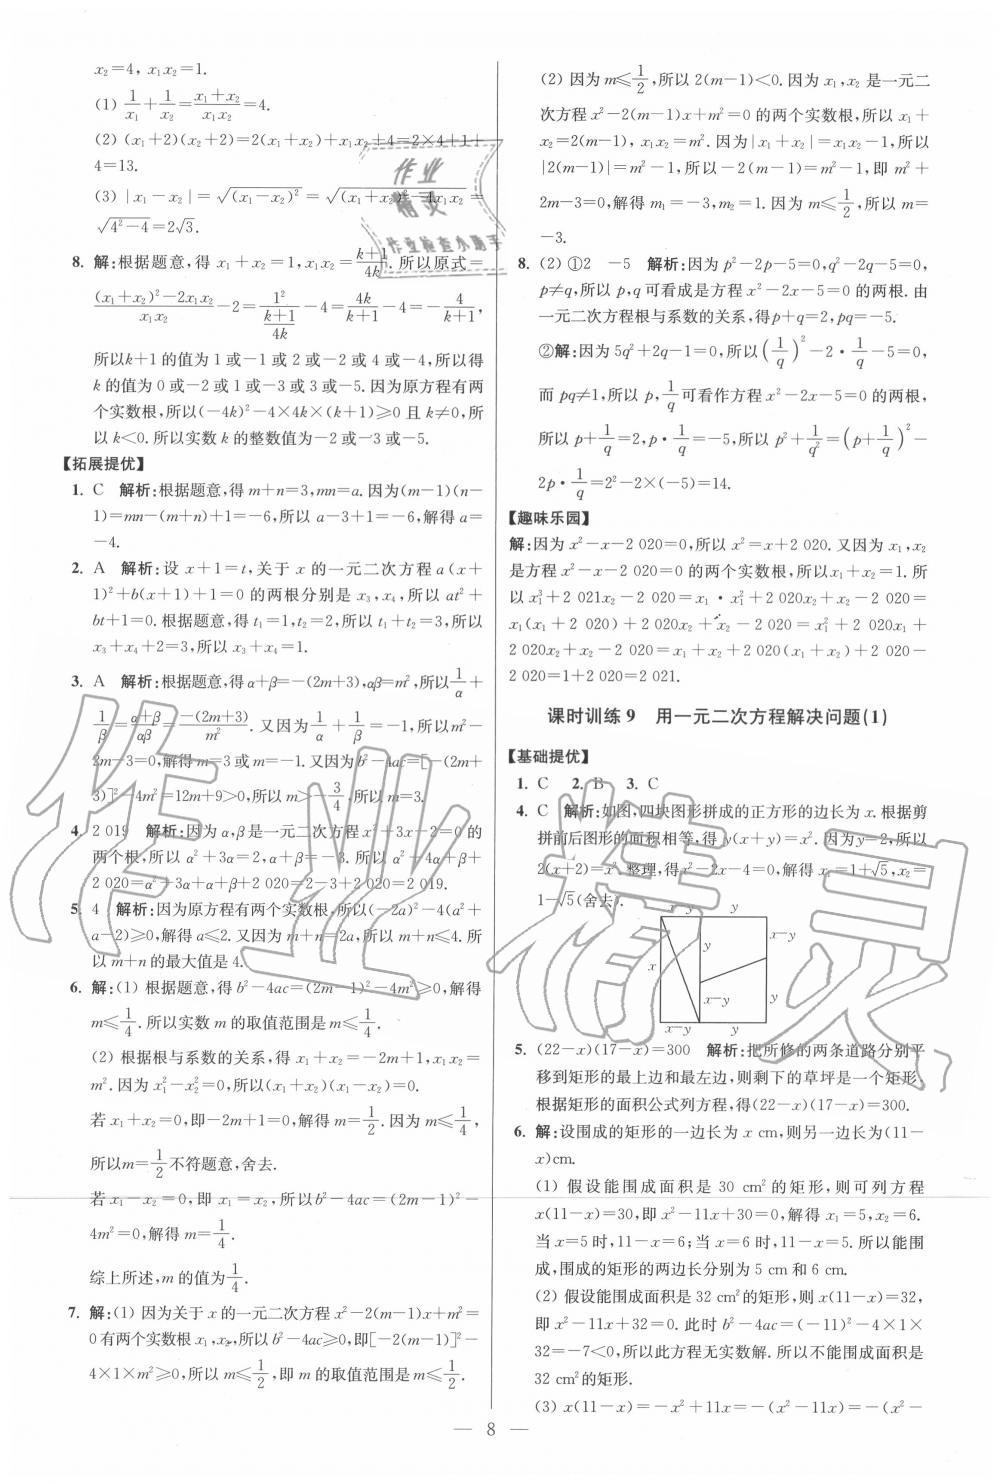 x₂=4, x₁x₂=1.
(1) 1/x₁+1/x₂=(x₁+x₂)/(x₁x₂)=4.
(2) (x₁+2)(x₂+2)=2(x₁+x₂)+x₁x₂+4=2×4+1+
4=13.
(3) |x₁-x₂|=√((x₁-x₂)²)=√((x₁+x₂)²-4x₁x₂)=
√(4²-4)=2√3.
8. 解:根据题意,得 x₁+x₂=1,x₁x₂=(k+1)/(4k).所以原式=
((x₁+x₂)²-2x₁x₂)/(x₁x₂)-2=1²/((k+1)/(4k))-4=4k/(k+1)-4=-4/(k+1),
所以k+1 的值为 1 或-1 或 2 或-2 或 4 或-4,所以得
k 的值为 0 或-2 或 1 或-3 或 3 或-5.因为原方程有两
个实数根,所以(-4k)²-4×4k×(k+1)≥0 且 k≠0,所
以 k<0.所以实数 k 的整数值为-2 或-3 或-5.
【拓展提优】
1. C 解析:根据题意,得 m+n=3,mn=a.因为(m-1)(n-
1)=mn-(m+n)+1=-6,所以 a-3+1=-6,解得 a=
-4.
2. A 解析:设 x+1=t,关于 x 的一元二次方程 a(x+
1)²+b(x+1)+1=0 的两根分别是 x₃,x₄,所以 at²+
bt+1=0.根据题意,得 t₁=1,t₂=2,所以 t₁+t₂=3,所以
x₃+x₄+2=3,所以 x₃+x₄=1.
3. A 解析:根据题意,得 α+β=-(2m+3),αβ=m²,所以1/α+
1/β=(α+β)/(αβ)=-(2m+3)/m².又因为1/α+1/β=-1,所以 m²-
2m-3=0,解得 m=3 或 m=-1.又因为 b²-4ac=[-(2m+
3)]²-4m²=12m+9>0,所以 m>-3/4,所以 m=3.
4. 2 019 解析:因为 α,β 是一元二次方程 x²+3x-2=0 的
两个根,所以 α²+3α=2,α+β=-3.所以 α²+4α+β+
2 020=α²+3α+α+β+2 020=2-3+2 020=2 019.
5. 4 解析:因为原方程有两个实数根,所以(-2a)²-4(a²+
a-2)≥0,解得 a≤2.又因为 m+n=2a,所以 m+n≤4.所
以 m+n 的最大值是 4.
6. 解:(1) 根据题意,得 b²-4ac=(2m-1)²-4m²≥0,解得
m≤1/4.所以实数 m 的取值范围是 m≤1/4.
(2) 根据根与系数的关系,得 x₁+x₂=-2m+1,x₁x₂=
m².因为 x₁²-x₂²=0,所以(x₁+x₂)(x₁-x₂)=0.
若 x₁+x₂=0,即-2m+1=0,解得 m=1/2.因为 m≤1/4,
所以m=1/2不符题意,舍去.
若 x₁-x₂=0,即 x₁=x₂,所以 b²-4ac=(2m-1)²-
4m²=0,解得 m=1/4.
综上所述,m 的值为1/4.
7. 解:(1) 因为关于 x 的一元二次方程 x²-2(m-1)x+m²=
0 有两个实数根 x₁,x₂,所以 b²-4ac≥0,即[-2(m-1)]²-
4×1×m²≥0,所以 m≤1/2,即 m 的取值范围是 m≤1/2.
(2) 因为 m≤1/2,所以 2(m-1)<0.因为 x₁,x₂ 是一元二
次方程 x²-2(m-1)x+m²=0 的两个实数根,所以 x₁+
x₂=2(m-1),x₁x₂=m².因为|x₁+x₂|=x₁x₂-1,所以
|2(m-1)|=m²-1,所以-2(m-1)=m²-1,即 m²+
2m-3=0,解得 m₁=-3,m₂=1.因为 m≤1/2,所以 m=
-3.
8. (2) ①2 -5 解析:因为 p²-2p-5=0,q²-2q-5=0,
p≠q,所以 p,q 可看成是方程 x²-2x-5=0 的两根.由
一元二次方程根与系数的关系,得p+q=2,pq=-5.
②解:因为 5q²+2q-1=0,所以(1/q)²-2·1/q-5=0,
而 pq≠1,所以 p,1/q可看作方程 x²-2x-5=0 的两根,
所以 p+1/q=2,p·1/q=-5,所以 p²+1/q²=(p+1/q)²-
2p·1/q=2²-2×(-5)=14.
【趣味乐园】
解:因为 x²-x-2 020=0,所以 x²=x+2 020.又因为 x₁,x₂
是方程 x²-x-2 020=0 的两个实数根,所以x₁+x₂=1.所
以 x₁³+2 021x₂-2 020=x₁·x₁²+2 020x₂+x₂-2 020=
x₁(x₁+2 020)+2 020x₂+x₂-2 020=x₁²+2 020x₁+
2 020x₂+x₂-2 020=x₁+2 020+2 020(x₁+x₂)+x₂-
2 020=1+2 020=2 021.
课时训练 9 用一元二次方程解决问题(1)
【基础提优】
1. C 2. B 3. C
4. C 解析:如图,四块图形拼成的正方形的边长为 x.根据剪
拼前后图形的面积相等,得 y(x+y)=x².因为y=2,所以
2(x+2)=x².整理,得 x²-2x-4=0,解得 x₁=1+√5,x₂=
1-√5(舍去).
x-y y y
y x-y
x
x-y y
x-y y
5. (22-x)(17-x)=300 解析:把所修的两条道路分别平
移到矩形的最上边和最左边,则剩下的草坪是一个矩形.
根据矩形的面积公式列方程,得(22-x)(17-x)=300.
6. 解:设围成的矩形的一边长为 x cm,则另一边长为(11-
x)cm.
(1) 假设能围成面积是 30 cm²的矩形,则可列方程
x(11-x)=30,即 x²-11x+30=0,解得 x₁=5,x₂=6.
当 x=5 时,11-x=6;当 x=6 时,11-x=5.所以能围
成,围成的矩形的两边长分别为 5 cm 和 6 cm.
(2) 假设能围成面积是 32 cm²的矩形,则 x(11-x)=32,
即 x²-11x+32=0.此时 b²-4ac=(-11)²-4×1×
32=-7<0,所以此方程无实数解.所以不能围成面积是
32 cm²的矩形.
(3) x(11-x)=-x²+11x=-(x²-11x)=-(x²-
— 8 —
作业
精灵
作业检查小助手
作业精灵